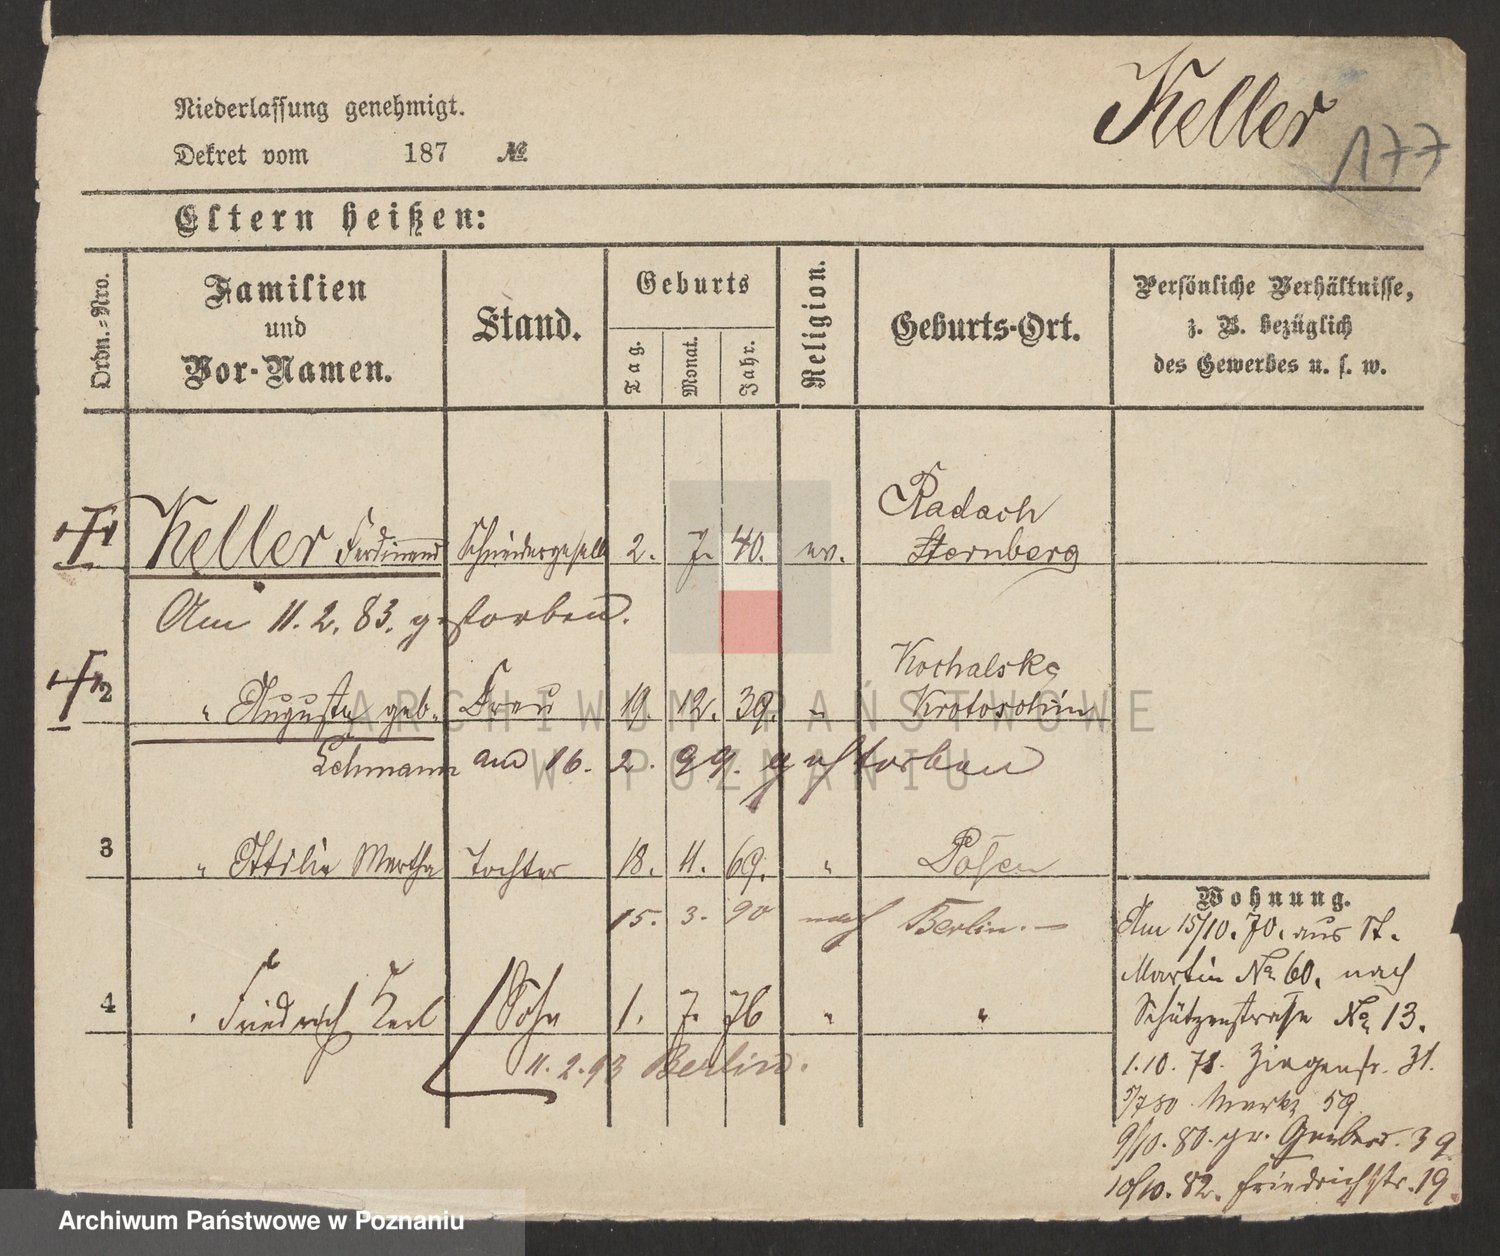 Keller
177
Niederlassung genehmigt.
Dekret vom 187 №
Eltern heißen:
Ordn.-Nro.
Familien
und
Vor-Namen.
Stand.
Geburts
Tag.
Monat.
Jahr.
Religion.
Geburts-Ort.
Persönliche Verhältnisse,
z. B. bezüglich
des Gewerbes u. s. w.
Radach
1 Keller Ferdinand Schneidergeselle 2. 7. 40. ev. Sternberg
Am 11. 2. 83. gestorben.
Kochalske
2 " Auguste geb. Frau 19. 12. 39. " Krotoschin
Lehmann am 16. 2. 99. gestorben
3 " Ottilie Martha Tochter 18. 11. 69. " Posen
15. 3. 90 nach Berlin. —
4 " Friedrich Karl Sohn 1. 7. 76 " "
11. 2. 93 Berlin.
Wohnung.
Am 15/10. 70. aus St.
Martin No 60. nach
Schützenstraße No 13.
1. 10. 78. Ziegenstr. 31.
5/7 80 Markt 59
9/10. 80. gr. Gerberstr. 39
10/10. 82. Friedrichstr. 19
ARCHIWUM PAŃSTWOWE
W POZNANIU
Archiwum Państwowe w Poznaniu